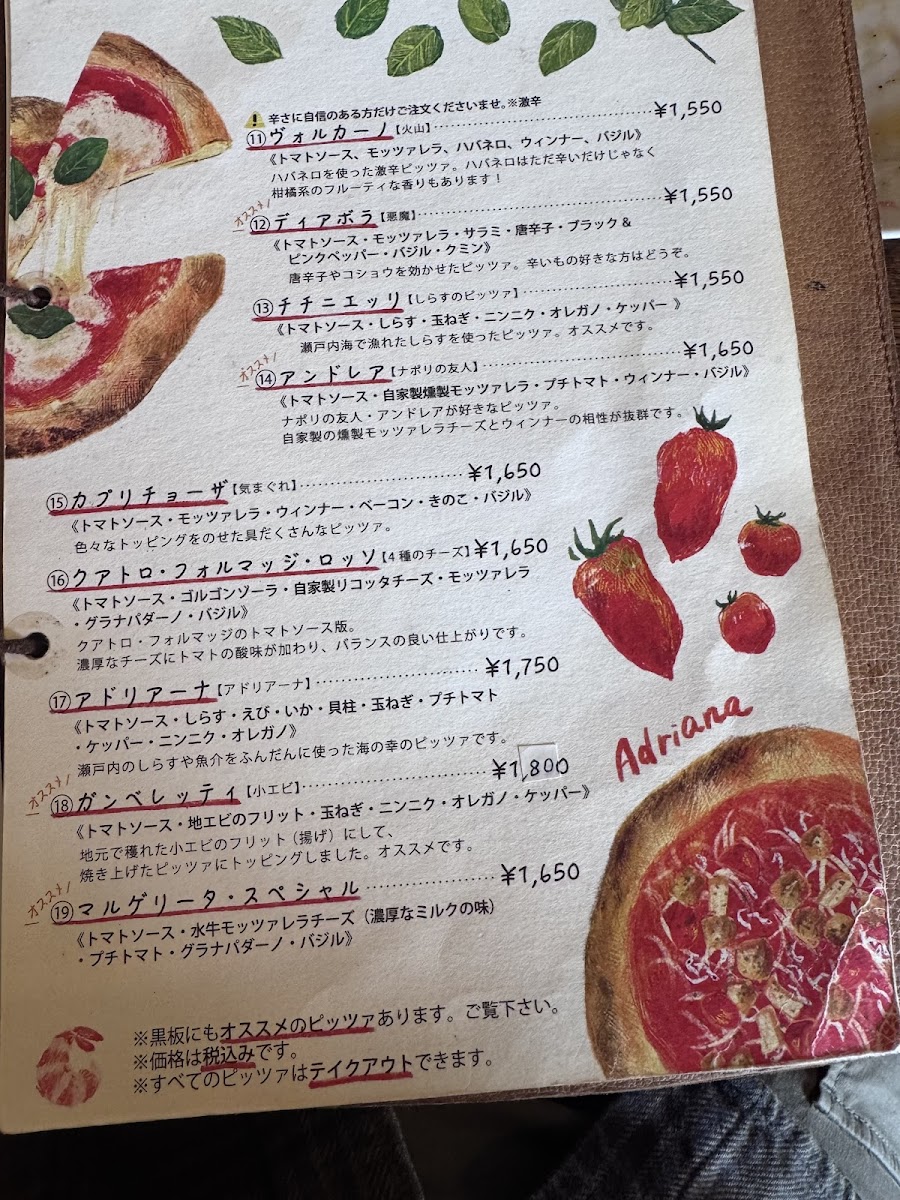 ⚠辛さに自信のある方だけご注文くださいませ。※激辛
⑪ヴォルカーノ【火山】……………………………¥1,550
《トマトソース、モッツァレラ、ハバネロ、ウィンナー、バジル》
ハバネロを使った激辛ピッツァ。ハバネロはただ辛いだけじゃなく
柑橘系のフルーティな香りもあります！
オススメ！
⑫ディアボラ【悪魔】……………………………¥1,550
《トマトソース・モッツァレラ・サラミ・唐辛子・ブラック＆
ピンクペッパー・バジル・クミン》
唐辛子やコショウを効かせたピッツァ。辛いもの好きな方はどうぞ。
⑬チチニエッリ【しらすのピッツァ】………………¥1,550
《トマトソース・しらす・玉ねぎ・ニンニク・オレガノ・ケッパー 》
瀬戸内海で漁れたしらすを使ったピッツァ。オススメです。
オススメ！
⑭アンドレア【ナポリの友人】……………………¥1,650
《トマトソース・自家製燻製モッツァレラ・プチトマト・ウィンナー・バジル》
ナポリの友人・アンドレアが好きなピッツァ。
自家製の燻製モッツァレラチーズとウィンナーの相性が抜群です。
⑮カプリチョーザ【気まぐれ】……………………¥1,650
《トマトソース・モッツァレラ・ウィンナー・ベーコン・きのこ・バジル》
色々なトッピングをのせた具だくさんなピッツァ。
⑯クアトロ・フォルマッジ・ロッソ【4種のチーズ】¥1,650
《トマトソース・ゴルゴンゾーラ・自家製リコッタチーズ・モッツァレラ
・グラナパダーノ・バジル》
クアトロ・フォルマッジのトマトソース版。
濃厚なチーズにトマトの酸味が加わり、バランスの良い仕上がりです。
⑰アドリアーナ【アドリアーナ】…………………¥1,750
《トマトソース・しらす・えび・いか・貝柱・玉ねぎ・プチトマト
・ケッパー・ニンニク・オレガノ》
瀬戸内のしらすや魚介をふんだんに使った海の幸のピッツァです。
オススメ！
⑱ガンベレッティ【小エビ】………………………¥1,800
《トマトソース・地エビのフリット・玉ねぎ・ニンニク・オレガノ・ケッパー》
地元で穫れた小エビのフリット（揚げ）にして、
焼き上げたピッツァにトッピングしました。オススメです。
オススメ！
⑲マルゲリータ・スペシャル………………………¥1,650
《トマトソース・水牛モッツァレラチーズ（濃厚なミルクの味）
・プチトマト・グラナパダーノ・バジル》
Adriana
※黒板にもオススメのピッツァあります。ご覧下さい。
※価格は税込みです。
※すべてのピッツァはテイクアウトできます。